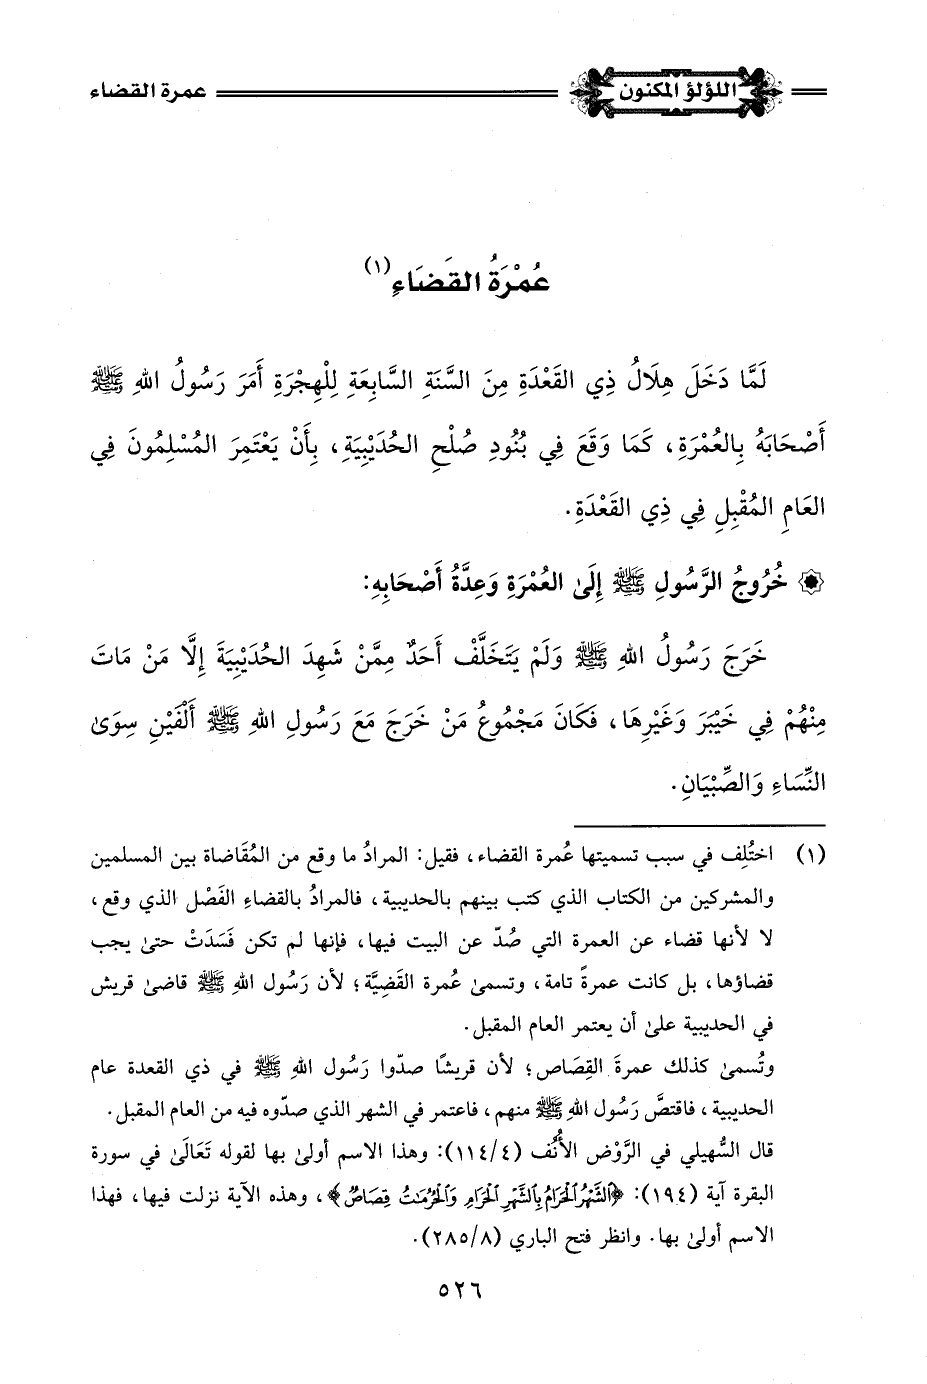 اللؤلؤ المكنون
عمرة القضاء
عُمْرَةُ القَضَاءِ (١)
لَمَّا دَخَلَ هِلَالُ ذِي القَعْدَةِ مِنَ السَّنَةِ السَّابِعَةِ لِلْهِجْرَةِ أَمَرَ رَسُولُ اللهِ ﷺ
أَصْحَابَهُ بِالعُمْرَةِ، كَمَا وَقَعَ فِي بُنُودِ صُلْحِ الحُدَيْبِيَةِ، بِأَنْ يَعْتَمِرَ المُسْلِمُونَ فِي
العَامِ المُقْبِلِ فِي ذِي القَعْدَةِ.
۞ خُرُوجُ الرَّسُولِ ﷺ إِلَىٰ العُمْرَةِ وَعِدَّةُ أَصْحَابِهِ:
خَرَجَ رَسُولُ اللهِ ﷺ وَلَمْ يَتَخَلَّفْ أَحَدٌ مِمَّنْ شَهِدَ الحُدَيْبِيَةَ إِلَّا مَنْ مَاتَ
مِنْهُمْ فِي خَيْبَرَ وَغَيْرِهَا، فَكَانَ مَجْمُوعُ مَنْ خَرَجَ مَعَ رَسُولِ اللهِ ﷺ أَلْفَيْنِ سِوَىٰ
النِّسَاءِ وَالصِّبْيَانِ.
(١) اختُلِف في سبب تسميتها عُمرة القضاء، فقيل: المرادُ ما وقع من المُقَاضاة بين المسلمين
والمشركين من الكتاب الذي كتب بينهم بالحديبية، فالمرادُ بالقضاءِ الفَصْل الذي وقع،
لا لأنها قضاء عن العمرة التي صُدّ عن البيت فيها، فإنها لم تكن فَسَدَتْ حتىٰ يجب
قضاؤها، بل كانت عمرةً تامة، وتسمىٰ عُمرة القَضِيَّة؛ لأن رَسُول اللهِ ﷺ قاضىٰ قريش
في الحديبية علىٰ أن يعتمر العام المقبل.
وتُسمىٰ كذلك عمرةَ القِصَاص؛ لأن قريشًا صدّوا رَسُول اللهِ ﷺ في ذي القعدة عام
الحديبية، فاقتصَّ رَسُول اللهِ ﷺ منهم، فاعتمر في الشهر الذي صدّوه فيه من العام المقبل.
قال السُّهيلي في الرَّوْض الأُنُف (١١٤/٤): وهذا الاسم أولىٰ بها لقوله تَعَالَىٰ في سورة
البقرة آية (١٩٤): ﴿الشَّهْرُ الْحَرَامُ بِالشَّهْرِ الْحَرَامِ وَالْحُرُمَاتُ قِصَاصٌ﴾، وهذه الآية نزلت فيها، فهذا
الاسم أولىٰ بها. وانظر فتح الباري (٢٨٥/٨).
٥٢٦